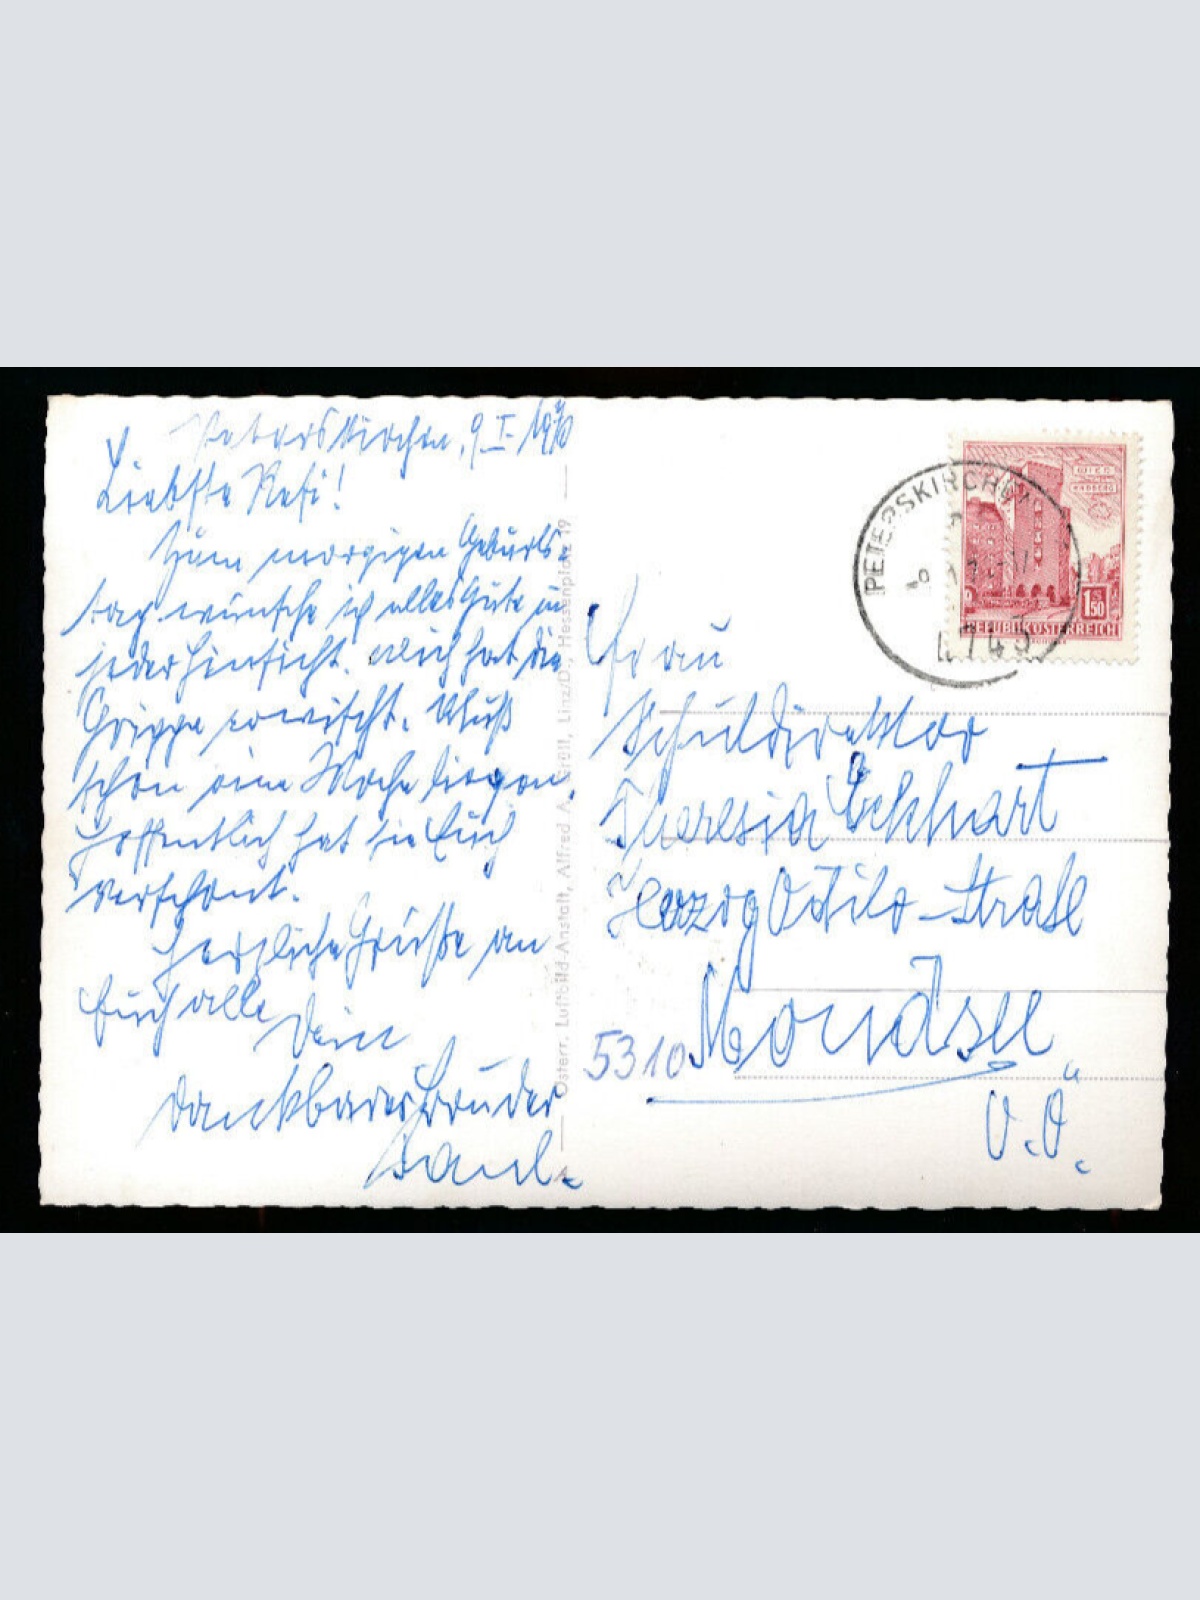 Peterskirchen, 9. I. 1970
Liebste Resi!
Zum morgigen Geburts-
tag wünsche ich alles Gute in
jeder Hinsicht. Mich hat die
Grippe erwischt. Muß
schon eine Woche liegen.
Hoffentlich hat sie Euch
verschont.
Herzliche Grüße an
Euch alle Dein
dankbarer Bruder
Österr. Luftbild-Anstalt, Alfred A. Linz/D., Hessenplatz 19
PETERSKIRCHEN
4743
WIEN
1.50
REPUBLIK ÖSTERREICH
Frau
Schuldirektor
Theresia Eckhart
Herzog Odilo-Straße
5310 Mondsee
O.Ö.